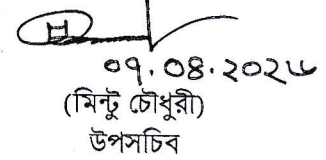 ০৭.০৪.২০২৬
(মিন্টু চৌধুরী)
উপসচিব